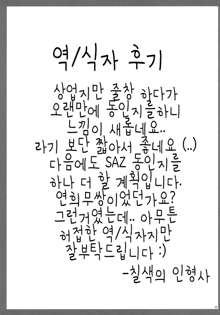 역/식자 후기
상업지만 줄창 하다가
오랜만에 동인지를하니
느낌이 새롭네요..
라기 보단 짧아서 좋네요 (..)
다음에도 SAZ 동인지를
하나 더 할 계획입니다.
연희무쌍이었던가요?
그런거였는데.. 아무튼
허접한 역/식자지만
잘부탁드립니다 :)
-칠색의 인형사